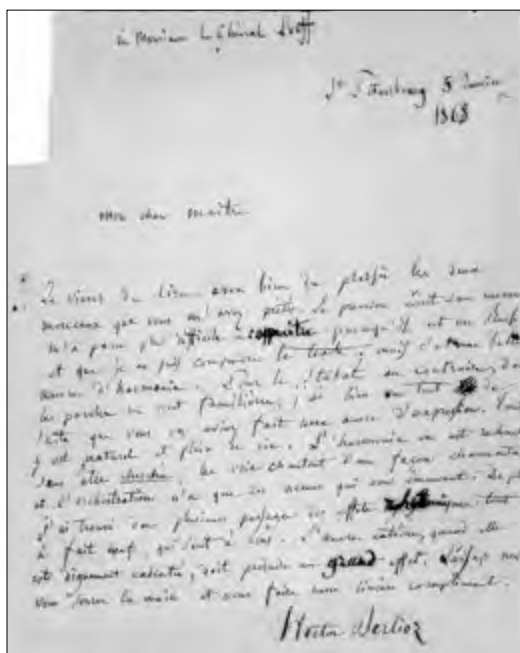 à Monsieur le Général Lvoff
St Pétersbourg 5 Janvier
1868
Mon cher maître
Je viens de lire avec bien du plaisir les deux
morceaux que vous m'avez prêtés. Le premier
m'a paru plus difficile à connaître puisqu'il est en Russe
et que je ne puis comprendre le texte; mais c'est une belle
œuvre d'harmonie. Pour le Stabat au contraire, dont
les paroles me sont familières, j'ai bien
que vous en aviez fait une œuvre d'expression. Tout
y est naturel et plein de vie. L'harmonie en est
sans être cherchée, les voix chantent d'une façon charmante
et l'orchestration n'a que des accens qui vous émeuvent. De plus
j'ai trouvé en plusieurs passages des effets tout
à fait neufs, qui sont à vous. L'œuvre entière, quand elle
est dignement exécutée, doit produire un grand effet. Laissez moi
vous serrer la main et vous faire mon sincère compliment.
Hector Berlioz